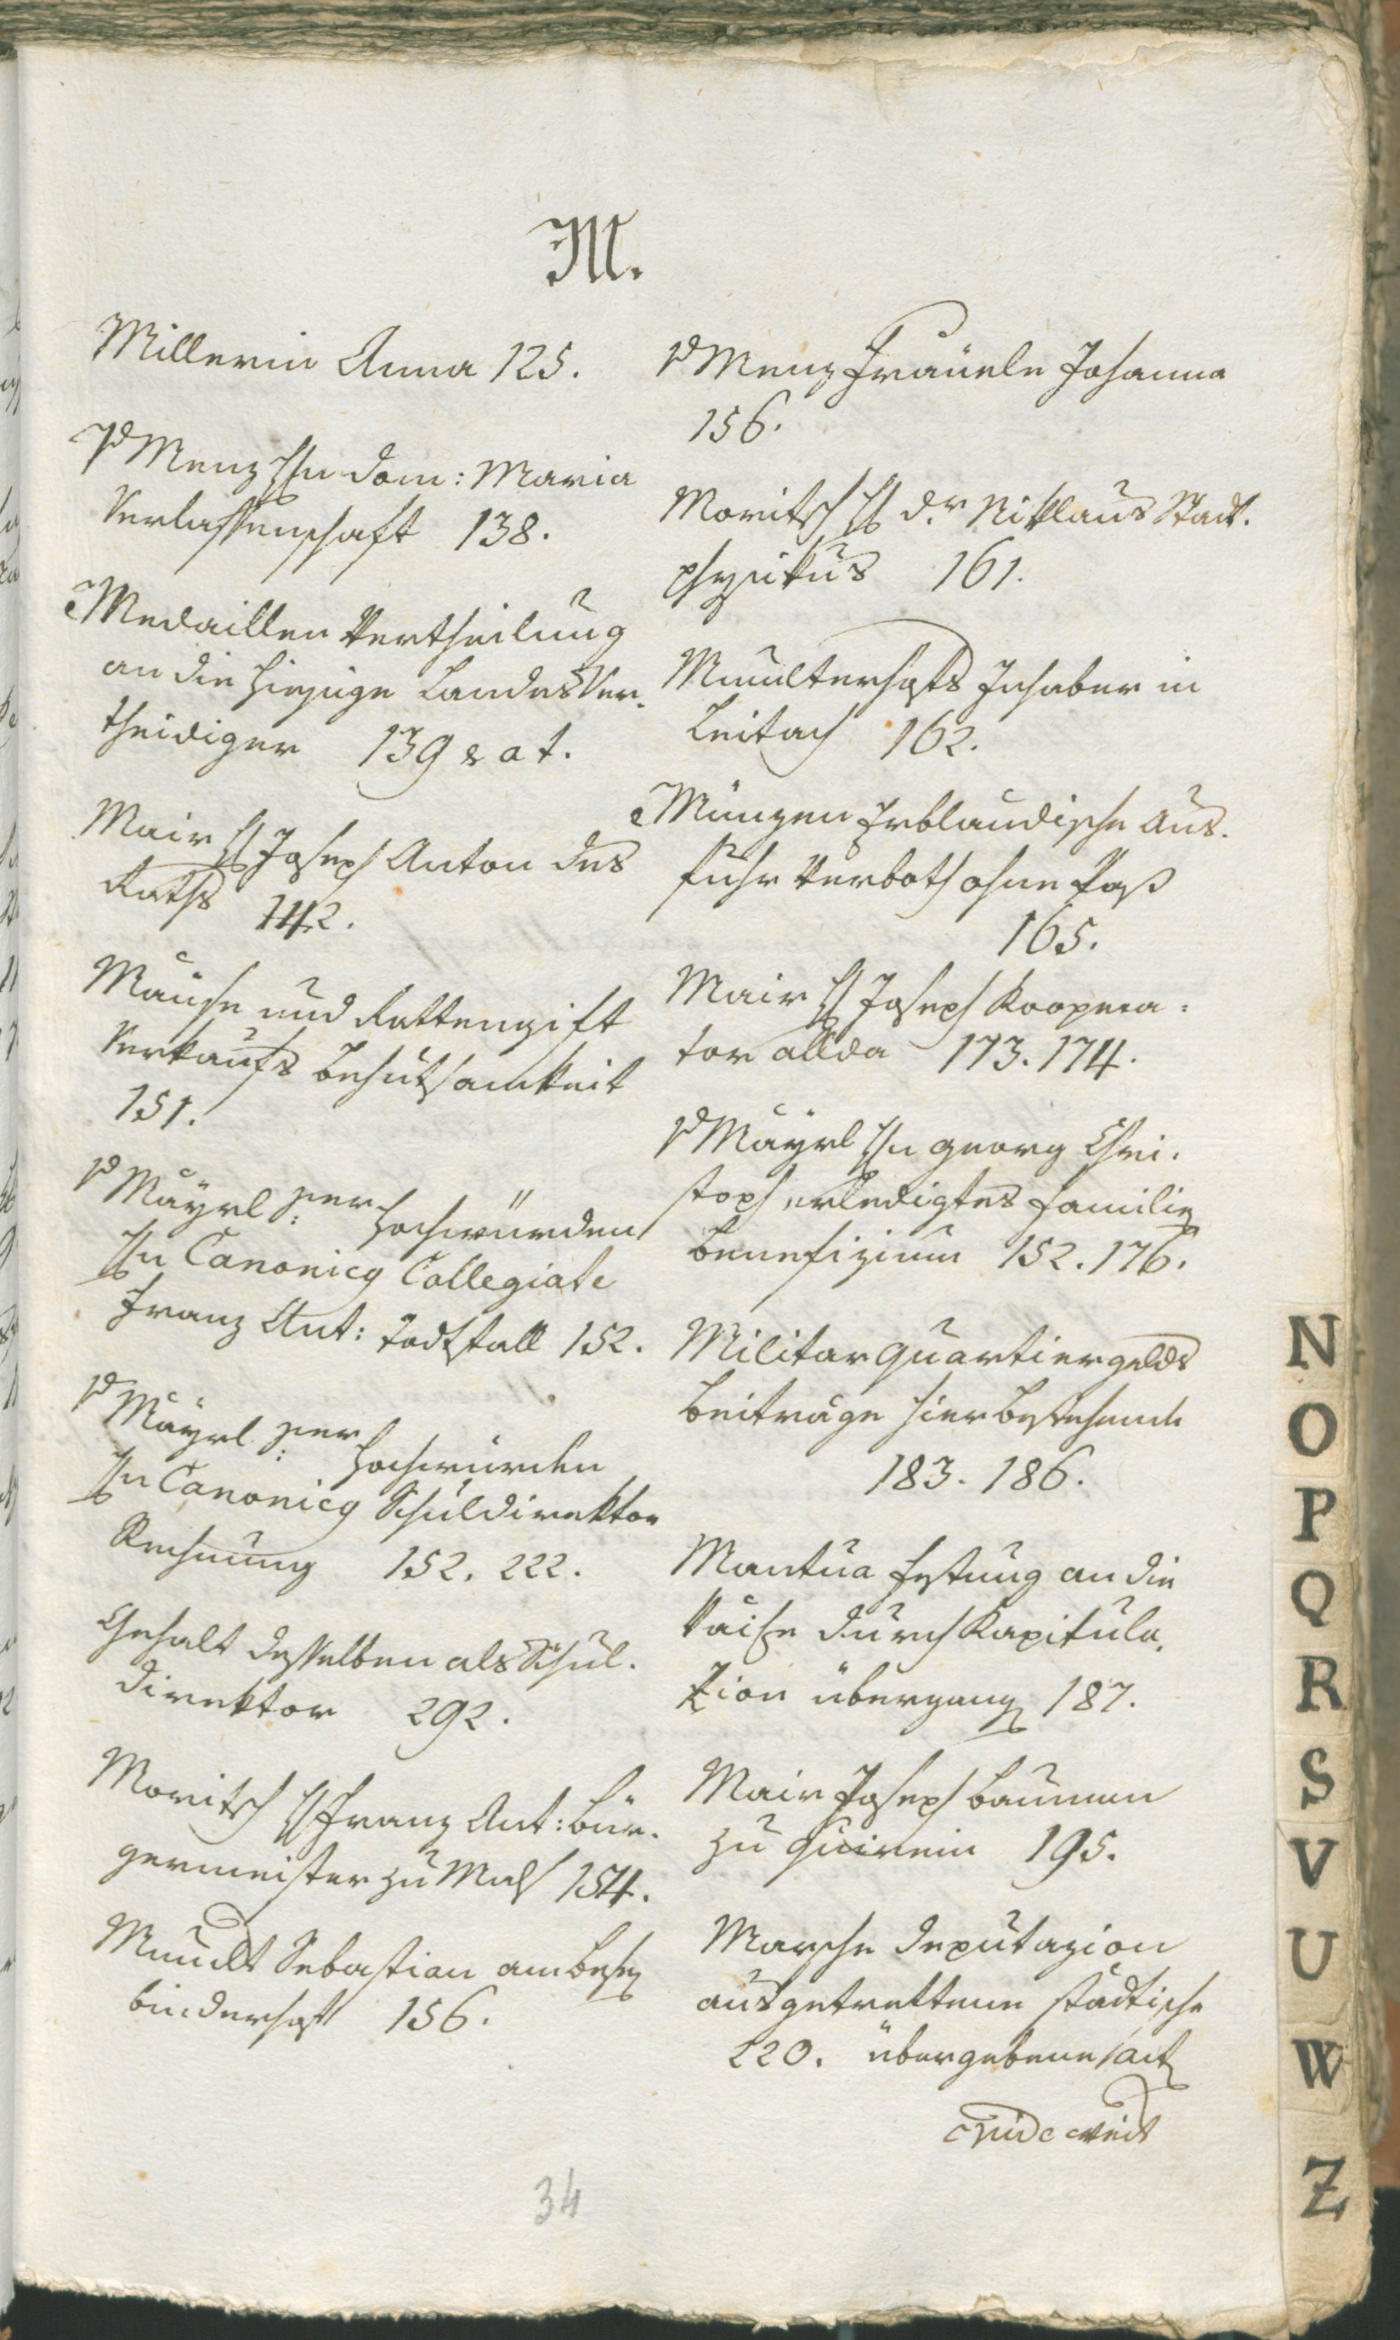 M.
Millerin Anna 125.
v Menz Hn Dom: Maria
Verlassenschaft 138.
Medaillen Vertheilung
an die hiesige Landesver-
theidiger 139 & a t.
Mair H Joseph Anton des
Raths 142.
Mäuse und Rattengift
Verkaufs behutsamkeit
151.
v Mäyrl: zer Hochwürden
Hn Canonicg Collegiate
Franz Ant: Todtfall 152.
v Mäyrl: zer Hochwürden
Hn Canonicg Schuldirektor
Rechnung 152. 222.
Gehalt desselben als Schul-
direktor 292.
Moritsch H Franz Ant: bür-
germeister zu Mals 154.
Mundt Sebastian am
binderhof 156.
v Menz Fräuele Johanna
156.
Moritsch H Dr Niklaus Stadt-
physikus 161.
Inhaber in
Leitach 162.
Münzen Erbländische Aus-
fuhr Verboth ohne Paß
165.
Mair H Joseph Koopera-
tor allda 173. 174.
v Mäyrl Hn Georg Chri-
stoph erledigtes Familie
benefizium 152. 176.
Militar Quartiergelds
beiträge hier bestehend
183. 186.
Mantua Festung an die
Kaise durch Kapitula-
zion übergang 187.
Mair Joseph Baumann
zu Quirein 195.
Marsche Deputazion
ausgetrettene städtische
220. übergebene Act
vide
34
N
O
P
Q
R
S
V
U
W
Z